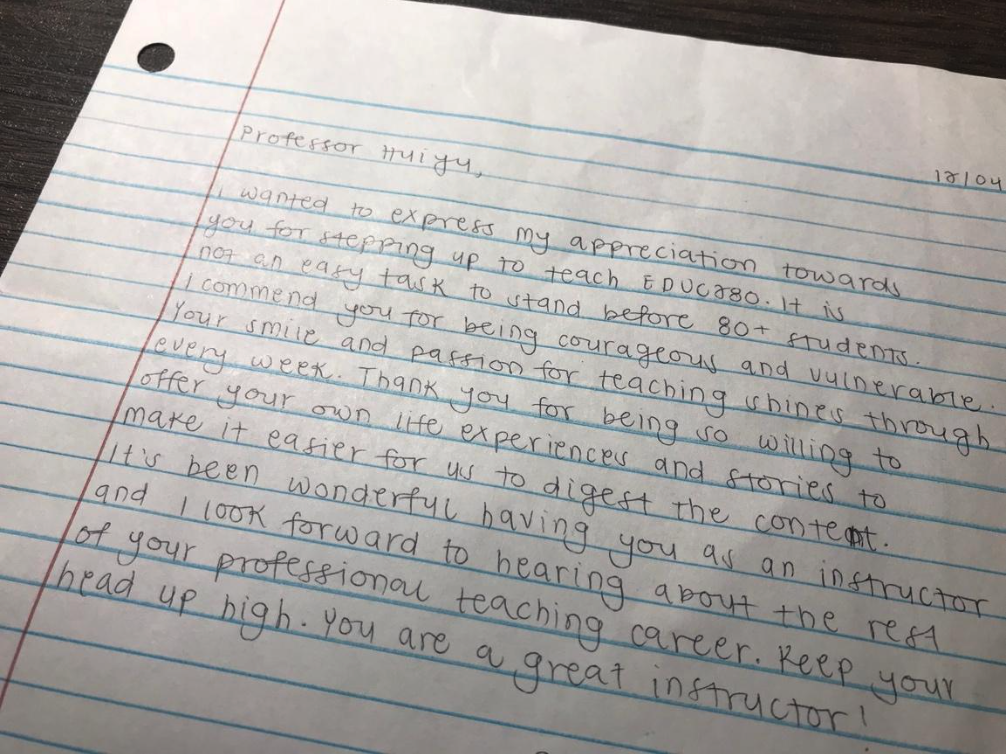 Professor Huiyu,
12/04
I wanted to express my appreciation towards
you for stepping up to teach EDUC280. It is
not an easy task to stand before 80+ students.
I commend you for being courageous and vulnerable.
Your smile and passion for teaching shines through
every week. Thank you for being so willing to
offer your own life experiences and stories to
make it easier for us to digest the content.
It's been wonderful having you as an instructor
and I look forward to hearing about the rest
of your professional teaching career. Keep your
head up high. You are a great instructor!